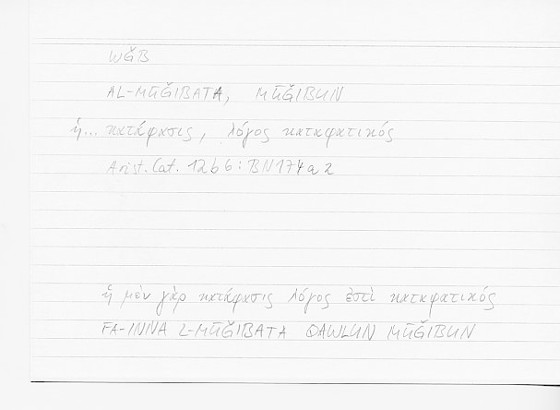 WĞB
AL-MŪĞIBATA, MŪĞIBUN
ἡ... κατάφασις, λόγος καταφατικός
Arist. Cat. 12b6: BN174a2
ἡ μὲν γὰρ κατάφασις λόγος ἐστὶ καταφατικός
FA-INNA L-MŪĞIBATA QAWLUN MŪĞIBUN